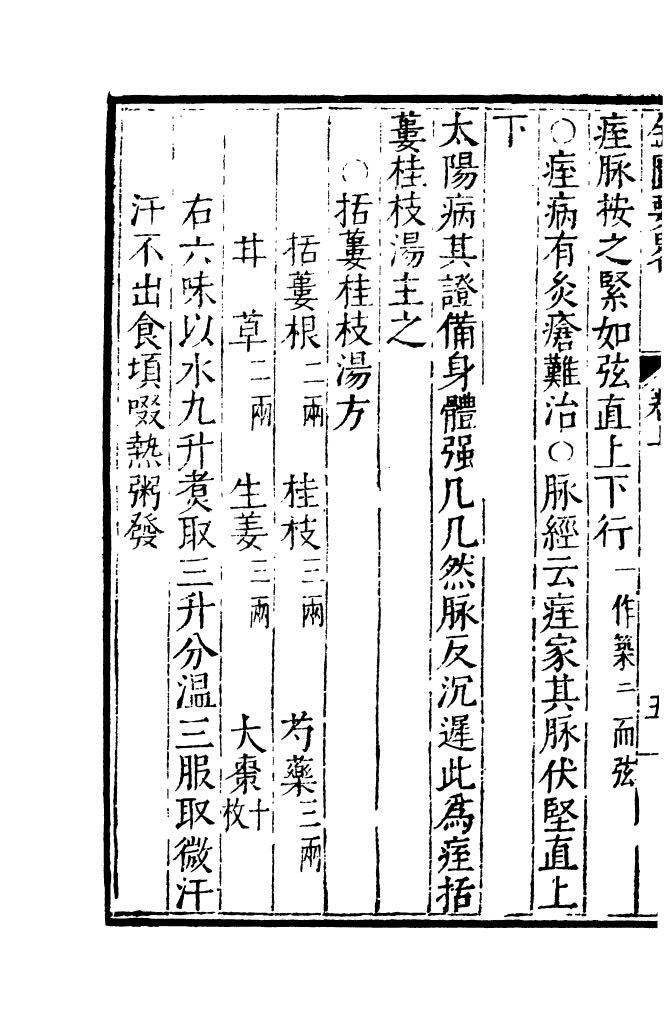 金匱要畧 卷上 五
痓脉按之緊如弦直上下行一作築二而弦
○痓病有灸瘡難治○脉經云痓家其脉伏堅直上
下
太陽病其證備身體强几几然脉反沉遲此爲痓栝
蔞桂枝湯主之
○栝蔞桂枝湯方
栝蔞根二兩 桂枝三兩 芍藥三兩
甘草二兩 生姜三兩 大棗十枚
右六味以水九升煑取三升分溫三服取微汗
汗不出食頃啜熱粥發